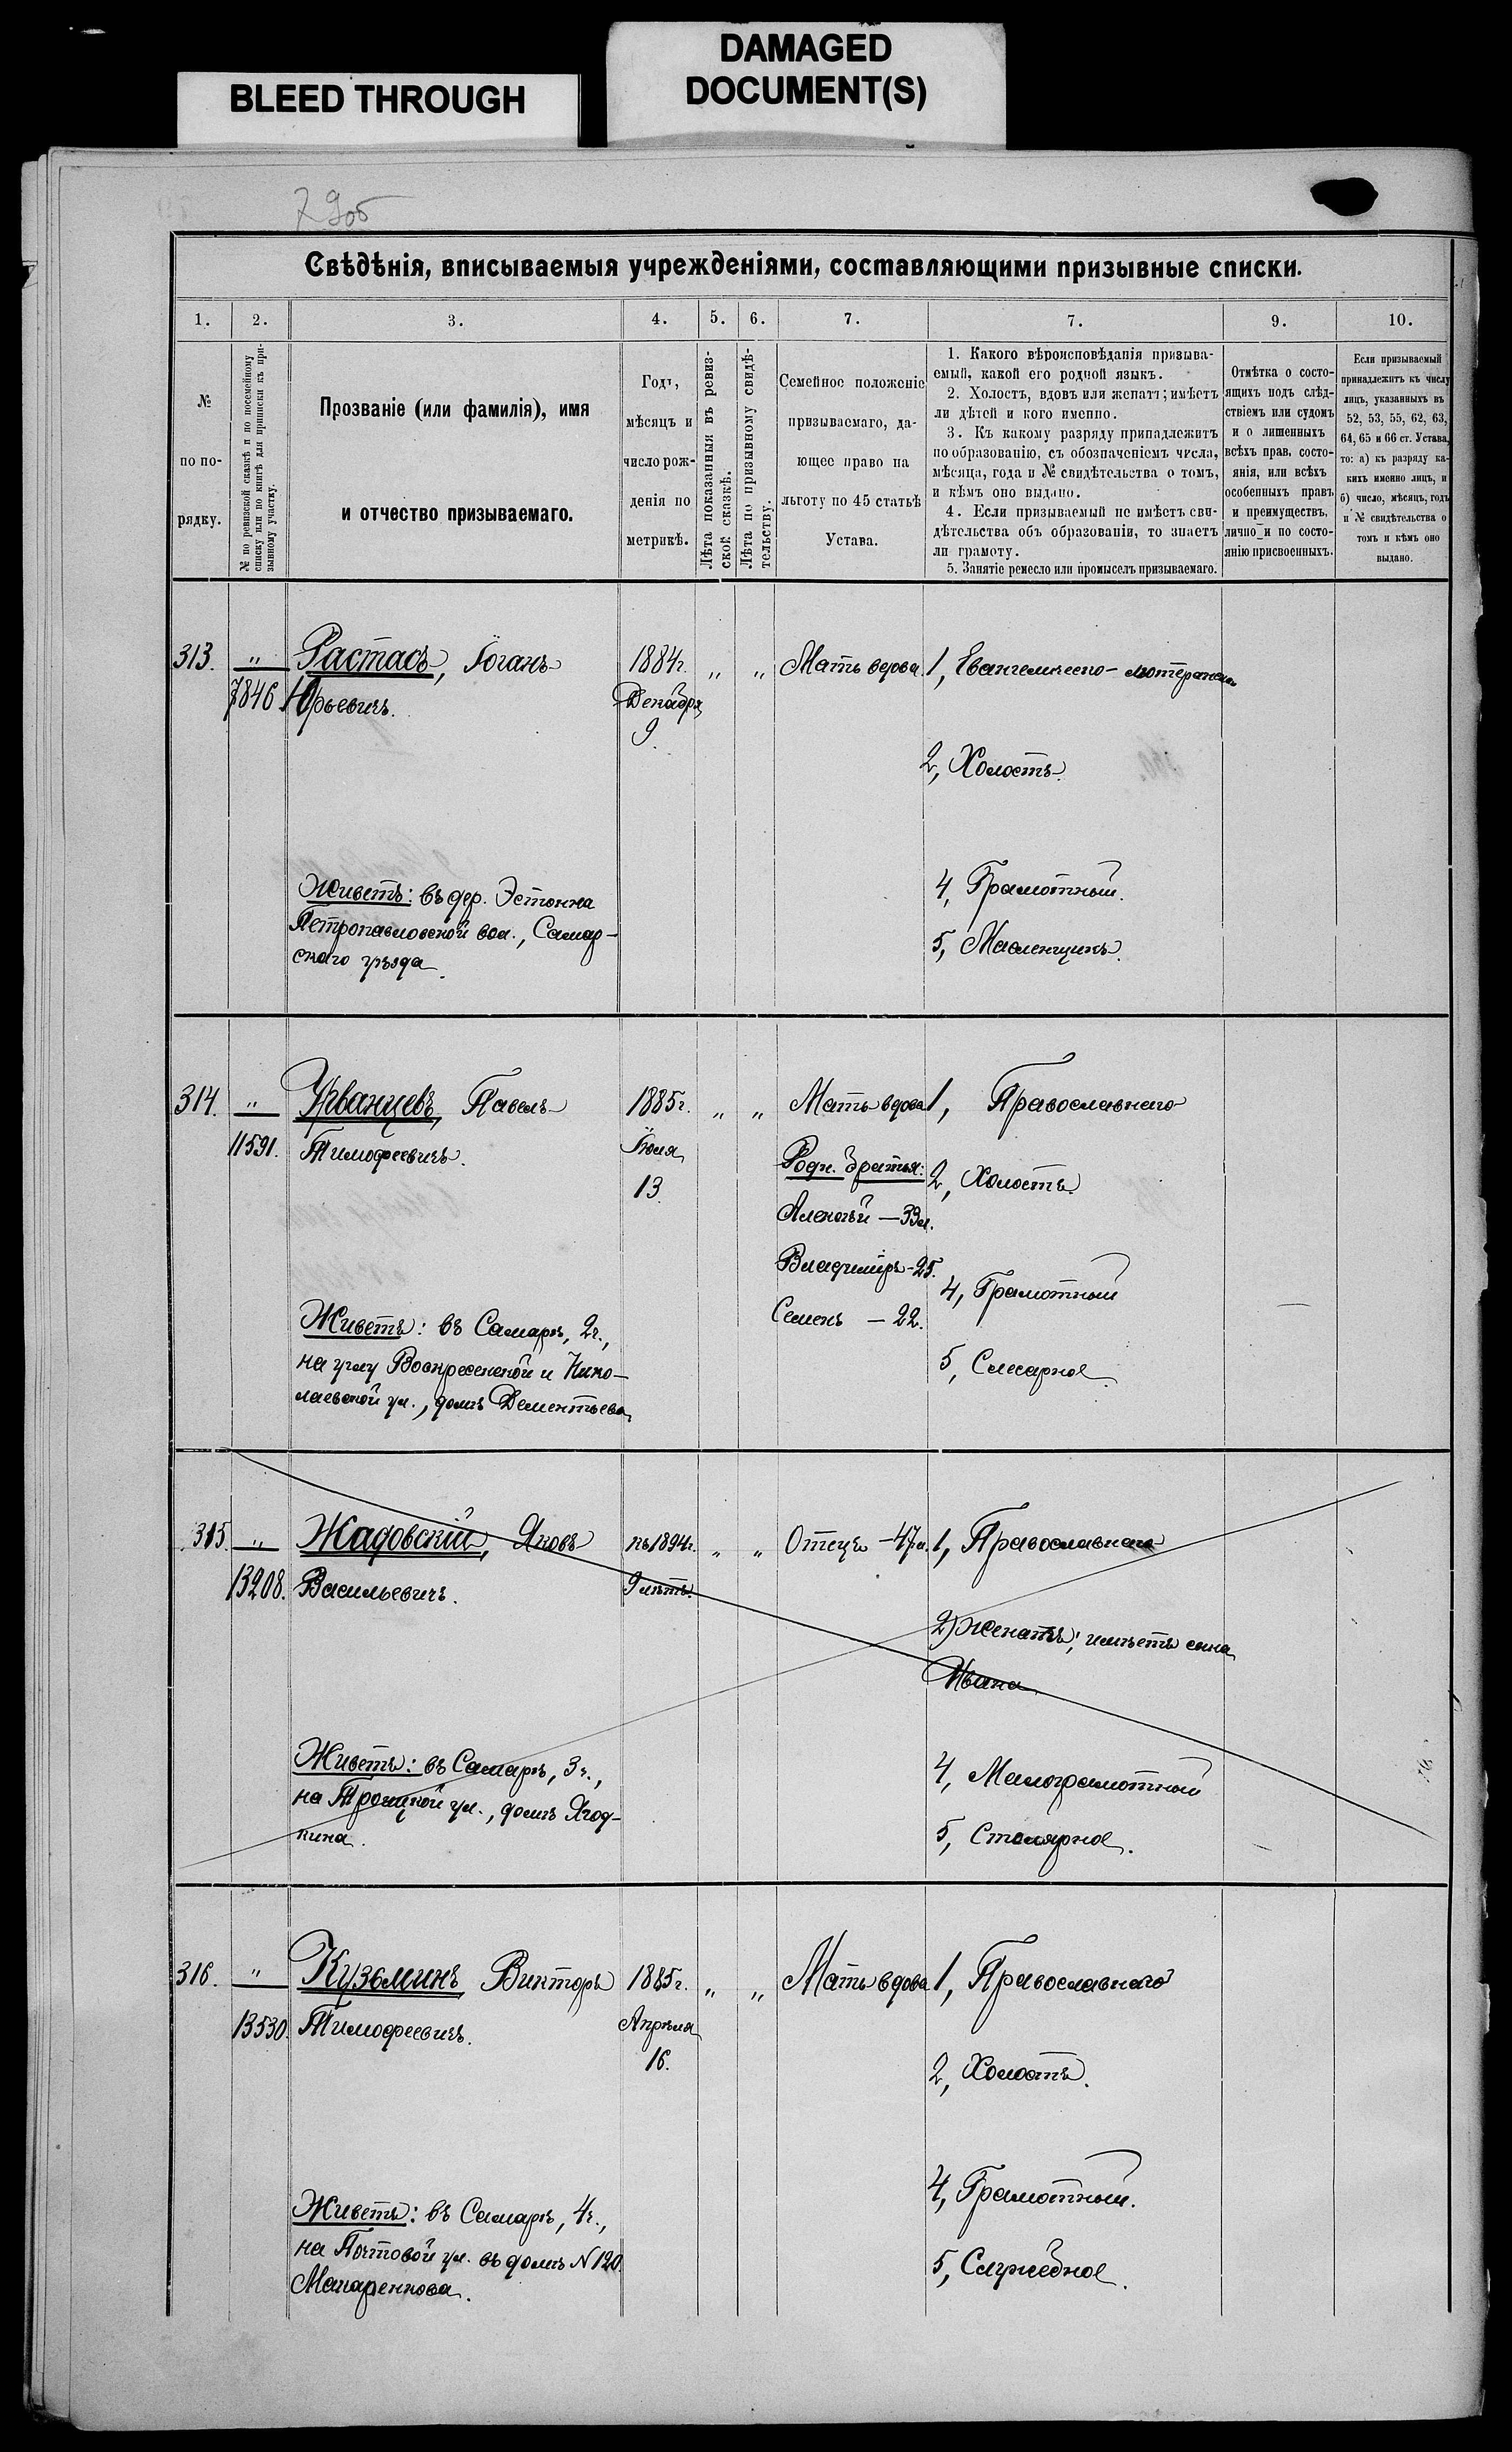 DAMAGED
DOCUMENT(S)
BLEED THROUGH
79об
Свѣдѣнія, вписываемыя учрежденіями, составляющими призывные списки.
1. 2. 3. 4. 5. 6. 7. 7. 9. 10.
№
по по-
рядку.
№ по ревизской сказкѣ и по посемейному
списку или по книгѣ для приписки къ при-
зывному участку.
Прозваніе (или фамилія), имя
и отчество призываемаго.
Годъ,
мѣсяцъ и
число рож-
денія по
метрикѣ.
Лѣта показанныя въ ревиз-
ской сказкѣ.
Лѣта по призывному свидѣ-
тельству.
Семейное положеніе
призываемаго, да-
ющее право на
льготу по 45 статьѣ
Устава.
1. Какого вѣроисповѣданія призыва-
емый, какой его родной языкъ.
2. Холостъ, вдовъ или женатъ; имѣетъ
ли дѣтей и кого именно.
3. Къ какому разряду принадлежитъ
по образованію, съ обозначеніемъ числа,
мѣсяца, года и № свидѣтельства о томъ,
и кѣмъ оно выдано.
4. Если призываемый не имѣетъ сви-
дѣтельства объ образованіи, то знаетъ
ли грамоту.
5. Занятіе ремесло или промыселъ призываемаго.
Отмѣтка о состо-
ящихъ подъ слѣд-
ствіемъ или судомъ
и о лишенныхъ
всѣхъ прав, состо-
янія, или всѣхъ
особенныхъ правъ
и преимуществъ,
лично и по состо-
янію присвоенныхъ.
Если призываемый
принадлежитъ къ числу
лицъ, указанныхъ въ
52, 53, 55, 62, 63,
64, 65 и 66 ст. Устава,
то: а) къ разряду ка-
кихъ именно лицъ, и
б) число, мѣсяцъ, годъ
и № свидѣтельства о
томъ и кѣмъ оно
выдано.
313. „ Растасъ, Іоганъ 1884г. „ „ Мать вдова. 1, Евангелическо-лютеранск.
7846. Юрьевичъ. Декабря
9.
2, Холостъ.
Живетъ: въ дер. Эстонка
Петропавловской вол., Самар-
скаго уѣзда.
4, Грамотный.
5, Масленщикъ.
314. „ Урванцевъ, Павелъ 1885г. „ „ Мать вдова 1, Православнаго
11591. Тимофеевичъ. Іюля
13.
Родн. братья: 2, Холостъ.
Алексѣй — 33л.
Владиміръ - 25.
Семенъ — 22.
4, Грамотный
5, Слесарное.
Живетъ: въ Самарѣ, 2ч.,
на углу Воскресенской и Нико-
лаевской ул., домъ Дементьева
315. „ Жадовскій, Яковъ къ 1894г. „ „ Отецъ - 47л. 1, Православнаго
13208. Васильевичъ. 9 лѣтъ.
2) Женатъ; имѣетъ сына
Ивана
Живетъ: въ Самарѣ, 3ч.,
на Троицкой ул., домъ Ягод-
кина.
4, Малограмотный
5, Столярное.
316. „ Кузьминъ Викторъ 1885г. „ „ Мать вдова 1, Православнаго
13530. Тимофеевичъ. Апрѣля
16.
2, Холостъ.
Живетъ: въ Самарѣ, 4ч.,
на Почтовой ул. въ домѣ №120.
Макаренкова.
4, Грамотный.
5, Служебное.